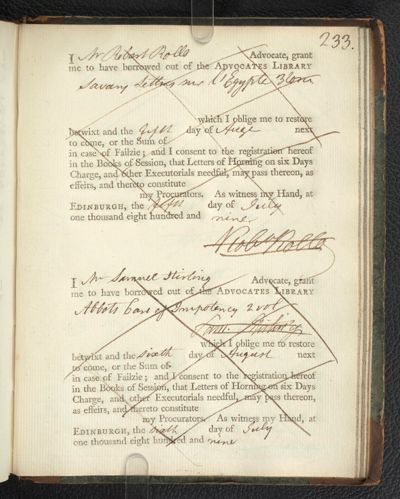 233.
I Mr Robert Rolls Advocate, grant
me to have borrowed out of the ADVOCATES LIBRARY
Savary Letters sur l'Egypte 3 vom
which I oblige me to restore
betwixt and the fifth day of Augt next
to come, or the Sum of
in case of Failzie; and I consent to the registration hereof
in the Books of Session, that Letters of Horning on six Days
Charge, and other Executorials needful, may pass thereon, as
effeirs, and thereto constitute
my Procurators. As witness my Hand, at
EDINBURGH, the fifth day of July
one thousand eight hundred and nine
Robt Rolls
I Mr Samuel Stirling Advocate, grant
me to have borrowed out of the ADVOCATES LIBRARY
Abbots Case of Impotency 2 vol
Sam. Stirling
which I oblige me to restore
betwixt and the sixth day of August next
to come, or the Sum of
in case of Failzie; and I consent to the registration hereof
in the Books of Session, that Letters of Horning on six Days
Charge, and other Executorials needful, may pass thereon,
as effeirs, and thereto constitute
my Procurators. As witness my Hand, at
EDINBURGH, the sixth day of July
one thousand eight hundred and nine